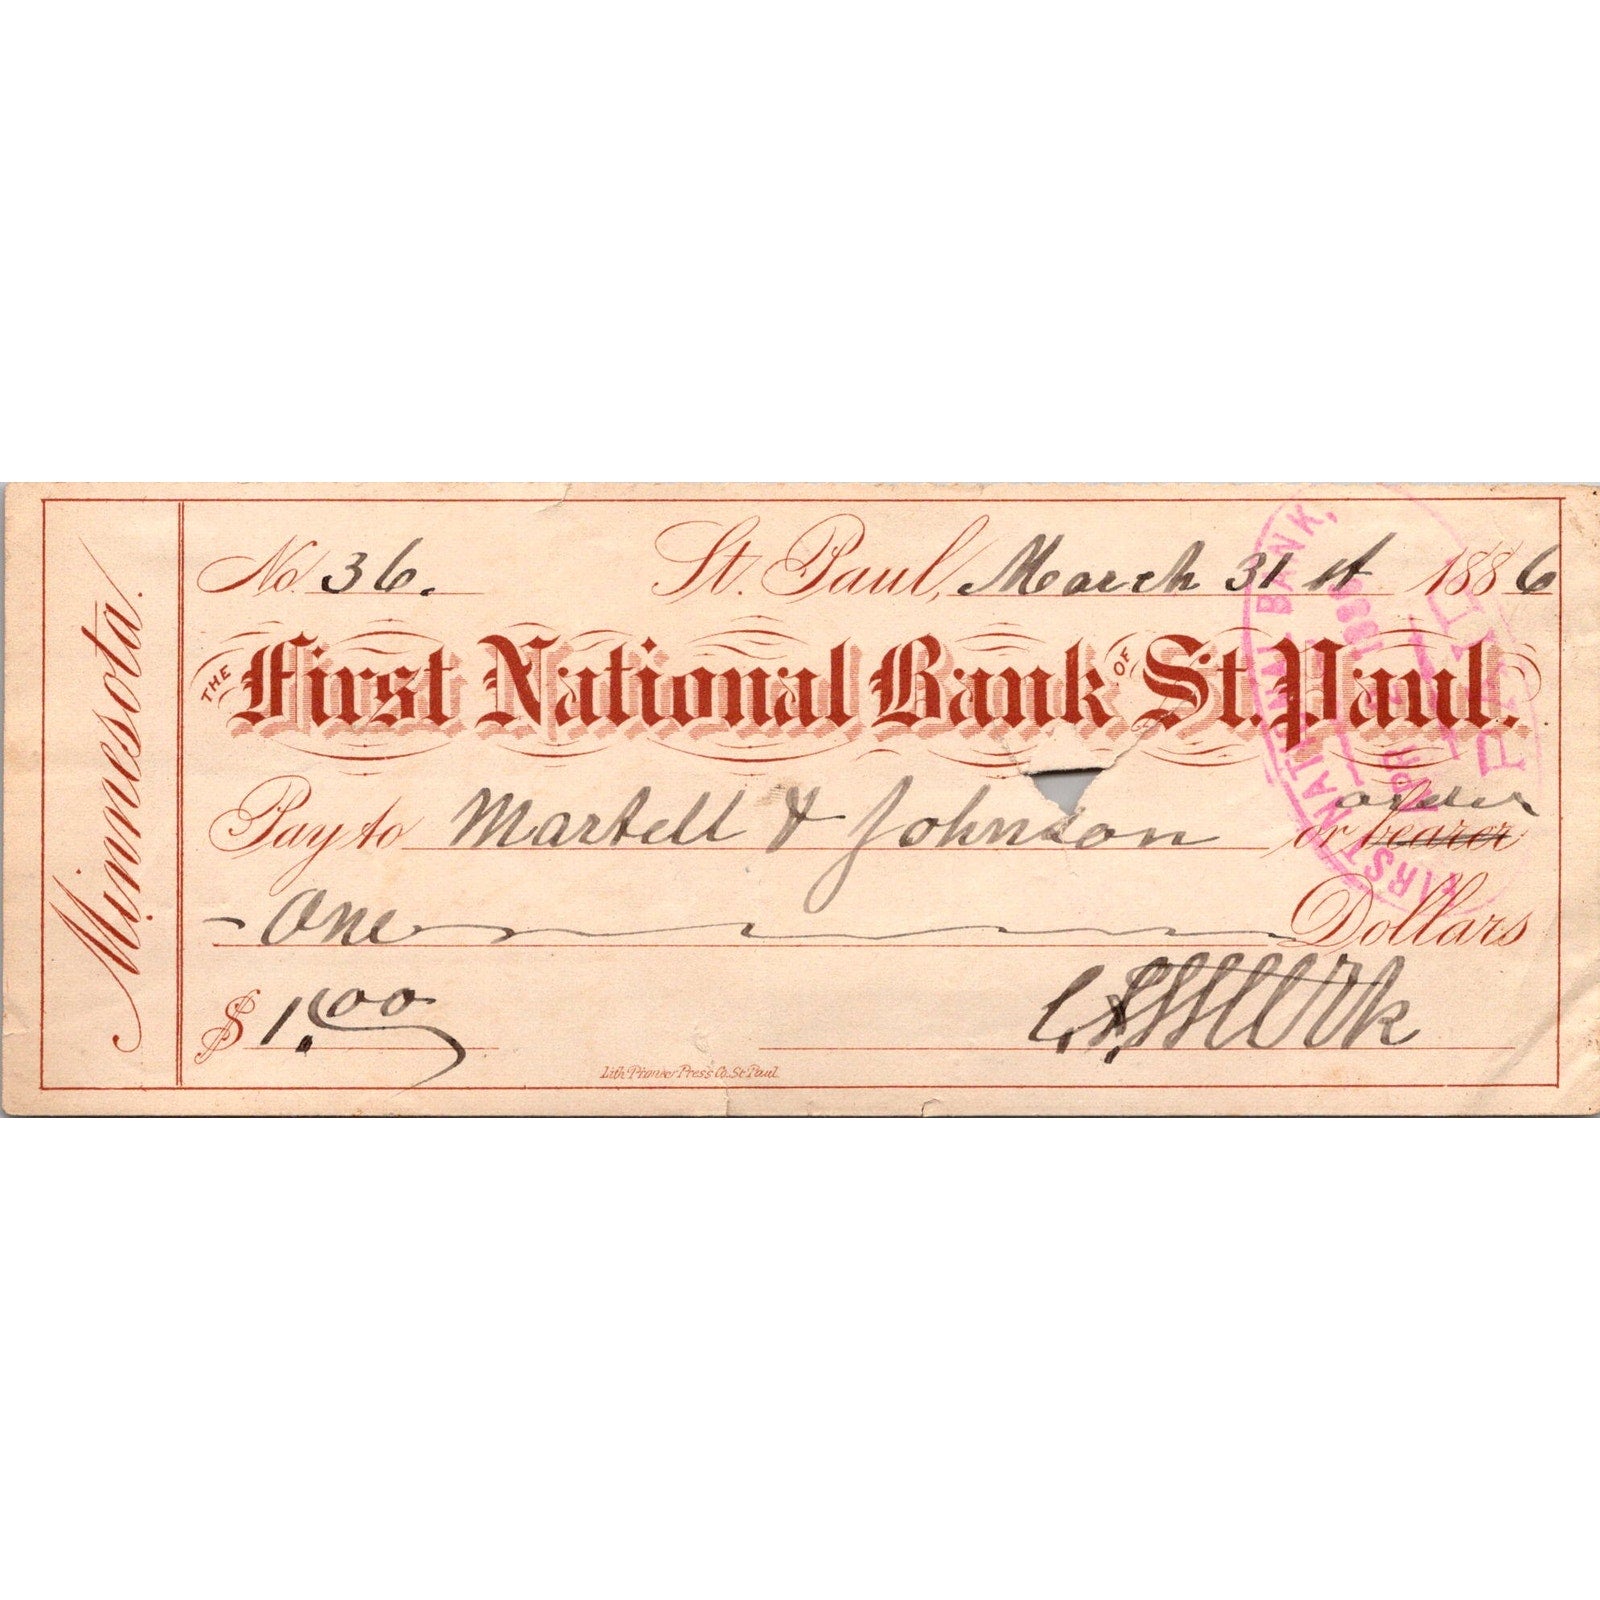 Minnesota.
No. 36. St. Paul, March 31st 1886
THE First National Bank OF St. Paul.
Pay to Martell & Johnson or bearer order
One Dollars
$ 1.00
Lith Pioneer Press Co. St Paul
FIRST NATIONAL BANK,
APR 1886
PAID